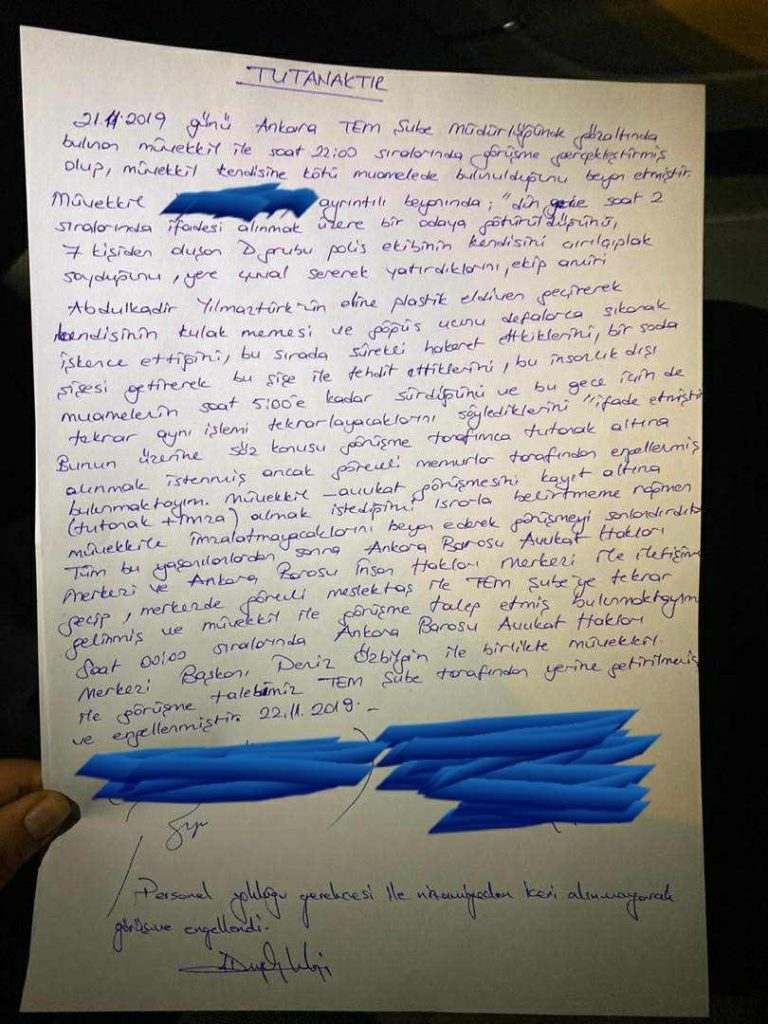 TUTANAKTIR
21.11.2019 günü Ankara TEM Şube Müdürlüğünde gözaltında
bulunan müvekkil ile saat 22:00 sıralarında görüşme gerçekleştirmiş
olup, müvekkil kendisine kötü muamelede bulunulduğunu beyan etmiştir.
Müvekkil ayrıntılı beyanında; "dün gece saat 2
sıralarında ifadesi alınmak üzere bir odaya götürüldüğünü,
7 kişiden oluşan D grubu polis ekibinin kendisini çırılçıplak
soyduğunu, yere çuval sererek yatırdıklarını, ekip amiri
Abdulkadir Yılmaztürk'ün eline plastik eldiven geçirerek
kendisinin kulak memesi ve göğüs ucunu defalarca sıkarak
işkence ettiğini, bu sırada sürekli hakaret ettiklerini, bir soda
şişesi getirerek bu şişe ile tehdit ettiklerini, bu insanlık dışı
muamelenin saat 5:00'e kadar sürdüğünü ve bu gece için de
tekrar aynı işlemi tekrarlayacaklarını söylediklerini" ifade etmiştir
Bunun üzerine söz konusu görüşme tarafımca tutanak altına
alınmak istenmiş ancak görevli memurlar tarafından engellenmiş
bulunmaktayım. Müvekkil - avukat görüşmesini kayıt altına
(tutanak + imza) almak istediğimi ısrarla belirtmeme rağmen
müvekkile imzalatmayacaklarını beyan ederek görüşmeyi sonlandırdılar
Tüm bu yaşanılanlardan sonra Ankara Barosu Avukat Hakları
Merkezi ve Ankara Barosu İnsan Hakları Merkezi ile iletişime
geçip, merkezde görevli meslektaş ile TEM Şube'ye tekrar
gelinmiş ve müvekkil ile görüşme talep etmiş bulunmaktayım
Saat 00:00 sıralarında Ankara Barosu Avukat Hakları
Merkezi Başkanı Deniz Özbilgin ile birlikte müvekkil
ile görüşme talebimiz TEM Şube tarafından yerine getirilmemiş
ve engellenmiştir. 22.11.2019.-
Personel yokluğu gerekçesi ile nizamiyeden içeri alınmayarak
görüşme engellendi.